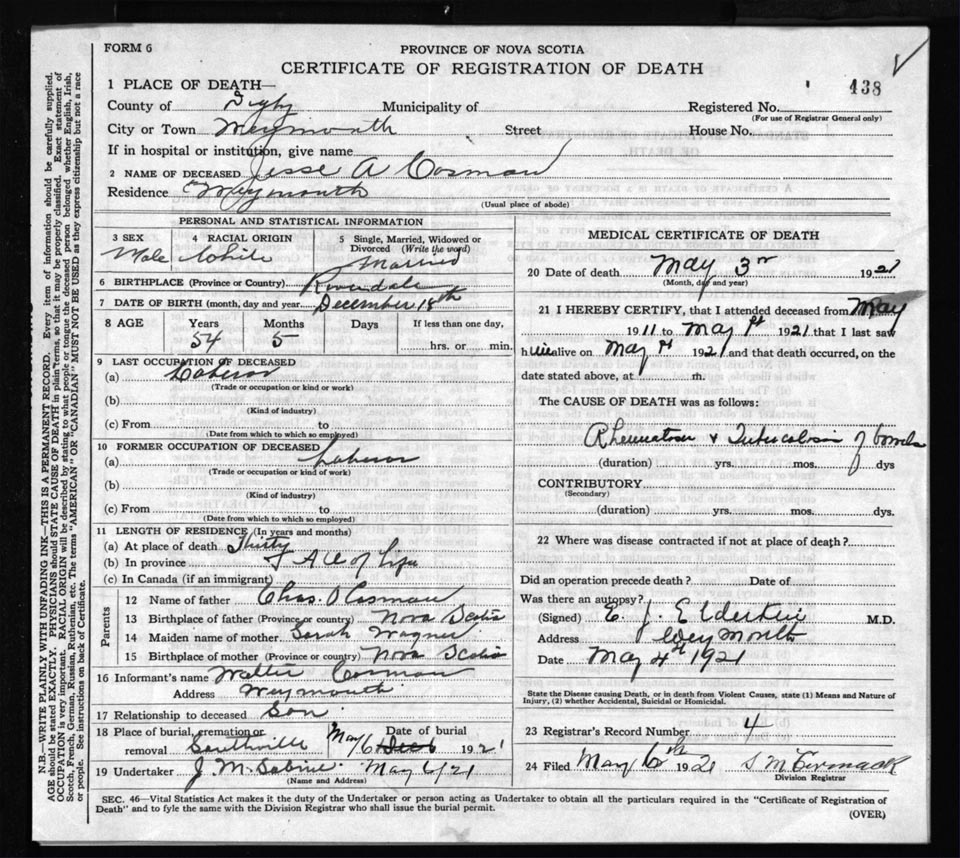 FORM 6
PROVINCE OF NOVA SCOTIA
CERTIFICATE OF REGISTRATION OF DEATH
438
1 PLACE OF DEATH—
County of Digby Municipality of Registered No.
(For use of Registrar General only)
City or Town Weymouth Street House No.
If in hospital or institution, give name
2 NAME OF DECEASED Jesse A Cosman
Residence Weymouth
(Usual place of abode)
PERSONAL AND STATISTICAL INFORMATION
3 SEX 4 RACIAL ORIGIN 5 Single, Married, Widowed or Divorced (Write the word)
Male White Married
6 BIRTHPLACE (Province or Country) Riverdale
7 DATE OF BIRTH (month, day and year) December 18th
8 AGE Years Months Days If less than one day,
54 5 hrs. or min.
9 LAST OCCUPATION OF DECEASED
(a) Laberor
(Trade or occupation or kind of work)
(b)
(Kind of industry)
(c) From to
(Date from which to which so employed)
10 FORMER OCCUPATION OF DECEASED
(a) Laberor
(Trade or occupation or kind of work)
(b)
(Kind of industry)
(c) From to
(Date from which to which so employed)
11 LENGTH OF RESIDENCE (In years and months)
(a) At place of death Thirty
(b) In province All of Life
(c) In Canada (if an immigrant)
Parents
12 Name of father Chas. Cosman
13 Birthplace of father (Province or country) Nova Scotia
14 Maiden name of mother Sarah Wagner
15 Birthplace of mother (Province or country) Nova Scotia
16 Informant's name Walter Cosman
Address Weymouth
17 Relationship to deceased Son
18 Place of burial, cremation or removal Southville Date of burial May 6 1921
19 Undertaker J. M. Sabine May 6/21
(Name and Address)
MEDICAL CERTIFICATE OF DEATH
20 Date of death May 3rd 1921
(Month, day and year)
21 I HEREBY CERTIFY, that I attended deceased from May
1911 to May 1921 that I last saw
him alive on May 1921 and that death occurred, on the
date stated above, at m.
The CAUSE OF DEATH was as follows:
Rheumatism + Tuberculosis of bowels
(duration) yrs. mos. dys
CONTRIBUTORY
(Secondary)
(duration) yrs. mos. dys.
22 Where was disease contracted if not at place of death?
Did an operation precede death? Date of
Was there an autopsy?
(Signed) E. J. Elderkin M.D.
Address Weymouth
Date May 4th 1921
State the Disease causing Death, or in death from Violent Causes, state (1) Means and Nature of
Injury, (2) whether Accidental, Suicidal or Homicidal.
23 Registrar's Record Number 4
24 Filed May 6th 1921 S McCormack
Division Registrar
SEC. 46—Vital Statistics Act makes it the duty of the Undertaker or person acting as Undertaker to obtain all the particulars required in the "Certificate of Registration of
Death" and to fyle the same with the Division Registrar who shall issue the burial permit.
(OVER)
N.B.—WRITE PLAINLY WITH UNFADING INK—THIS IS A PERMANENT RECORD. Every item of information should be carefully supplied.
AGE should be stated EXACTLY. PHYSICIANS should STATE CAUSE OF DEATH in plain terms, so that it may be properly classified. Exact statement of
OCCUPATION is very important. RACIAL ORIGIN will be described by stating to what people or tongue the deceased person belonged whether English, Irish,
Scotch, French, German, Russian, Ruthenian, etc. The terms "AMERICAN" OR "CANADIAN" MUST NOT BE USED as they express citizenship but not a race
or people. See instructions on back of Certificate.